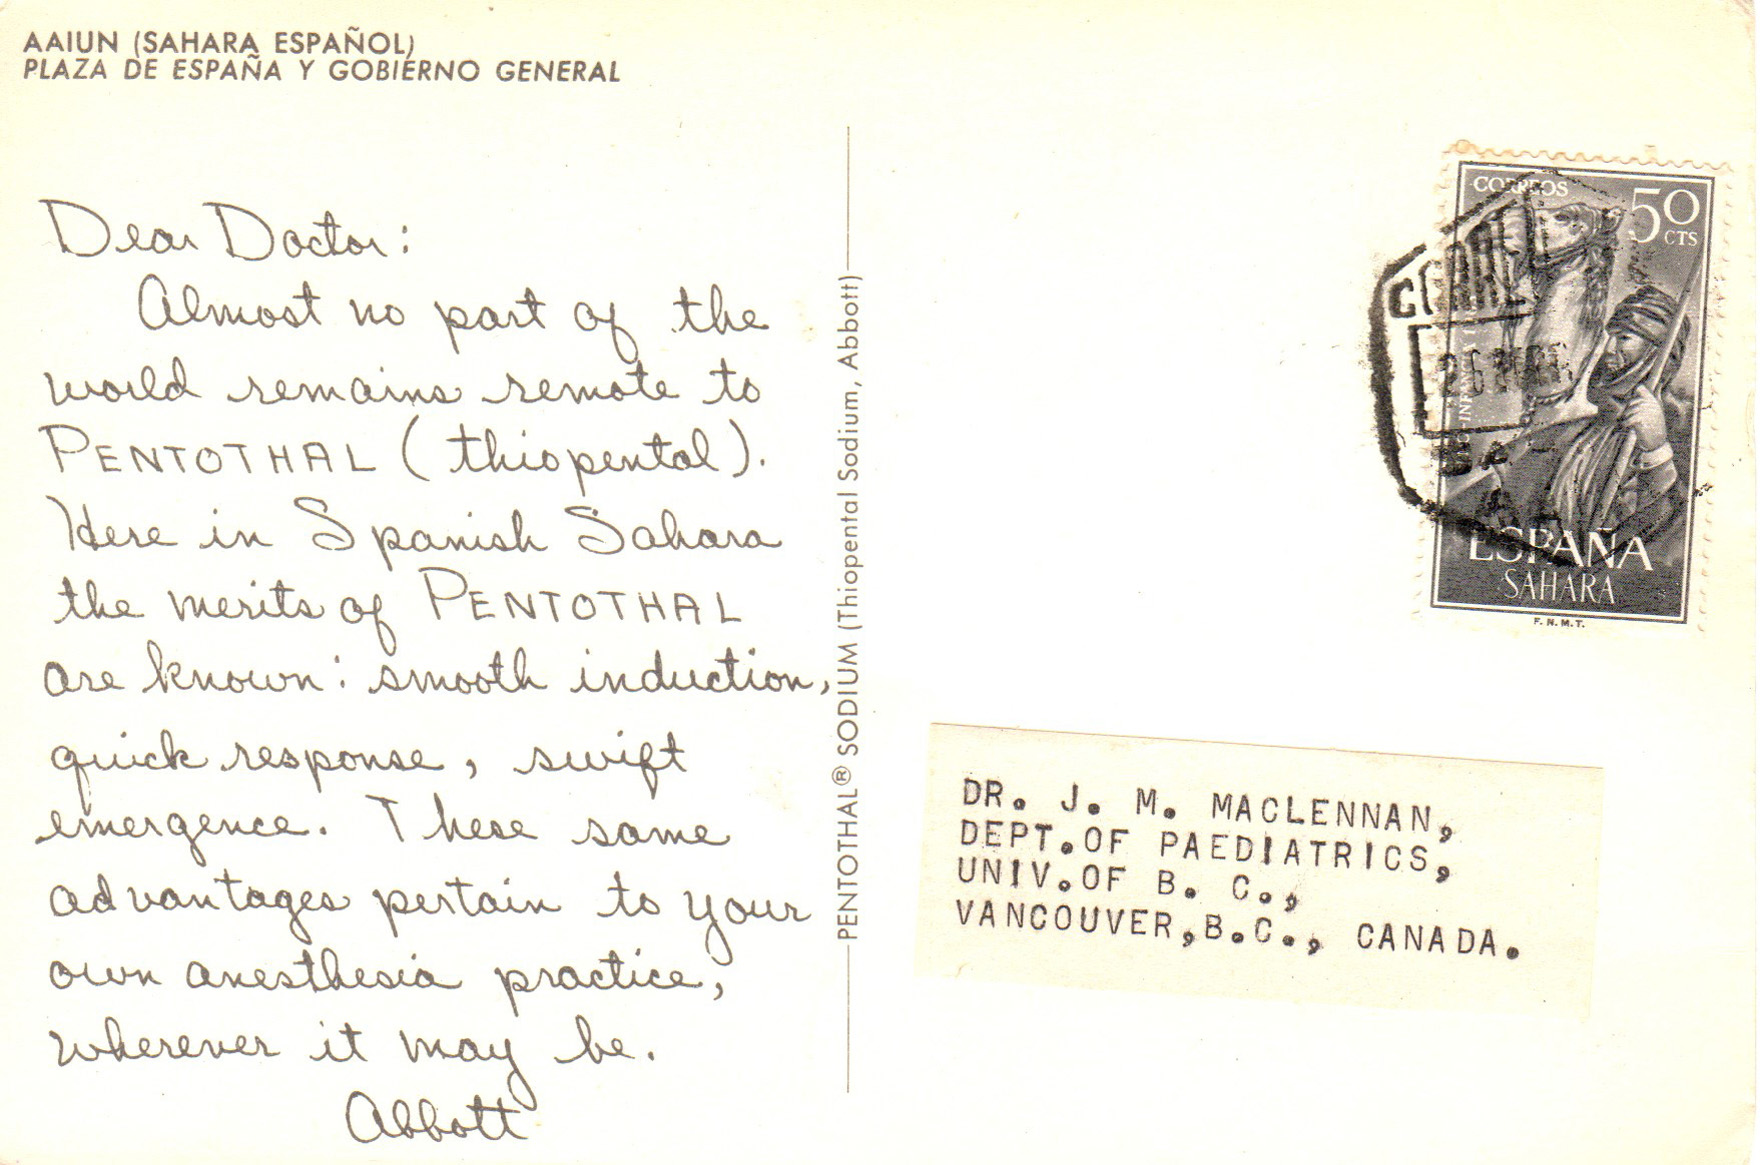 AAIUN (SAHARA ESPAÑOL)
PLAZA DE ESPAÑA Y GOBIERNO GENERAL
Dear Doctor:
Almost no part of the
world remains remote to
PENTOTHAL (thiopental).
Here in Spanish Sahara
the merits of PENTOTHAL
are known: smooth induction,
quick response, swift
emergence. These same
advantages pertain to your
own anesthesia practice,
wherever it may be.
Abbott
PENTOTHAL® SODIUM (Thiopental Sodium, Abbott)
CORREOS
50
CTS
ESPAÑA
SAHARA
F.N.M.T.
DR. J. M. MACLENNAN,
DEPT.OF PAEDIATRICS,
UNIV.OF B. C.,
VANCOUVER,B.C., CANADA.